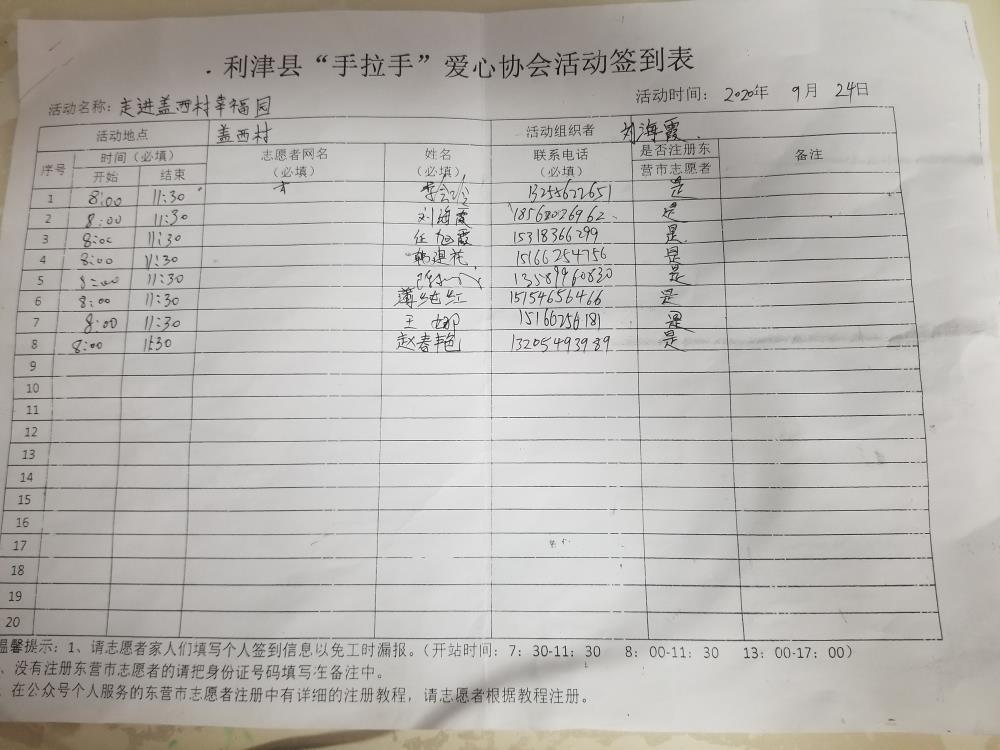 利津县“手拉手”爱心协会活动签到表
活动名称：走进盖西村幸福园 活动时间： 2020年 9月 24日
活动地点 盖西村 活动组织者 刘海霞
序号 时间（必填） 志愿者网名（必填） 姓名（必填） 联系电话（必填） 是否注册东营市志愿者 备注
开始 结束
1 8:00 11:30 李会玲 13255622651 是
2 8:00 11:30 刘海霞 18568026962 是
3 8:00 11:30 任旭霞 15318366299 是
4 8:00 11:30 韩建花 15166254756 是
5 8:00 11:30 13589960830 是
6 8:00 11:30 薄纯红 15154656466 是
7 8:00 11:30 王娜 15166256181 是
8 8:00 11:30 赵春艳 13205493989 是
9
10
11
12
13
14
15
16
17
18
19
20
温馨提示：1、请志愿者家人们填写个人签到信息以免工时漏报。（开站时间：7：30-11：30 8：00-11：30 13：00-17：00）
、没有注册东营市志愿者的请把身份证号码填写在备注中。
、在公众号个人服务的东营市志愿者注册中有详细的注册教程，请志愿者根据教程注册。